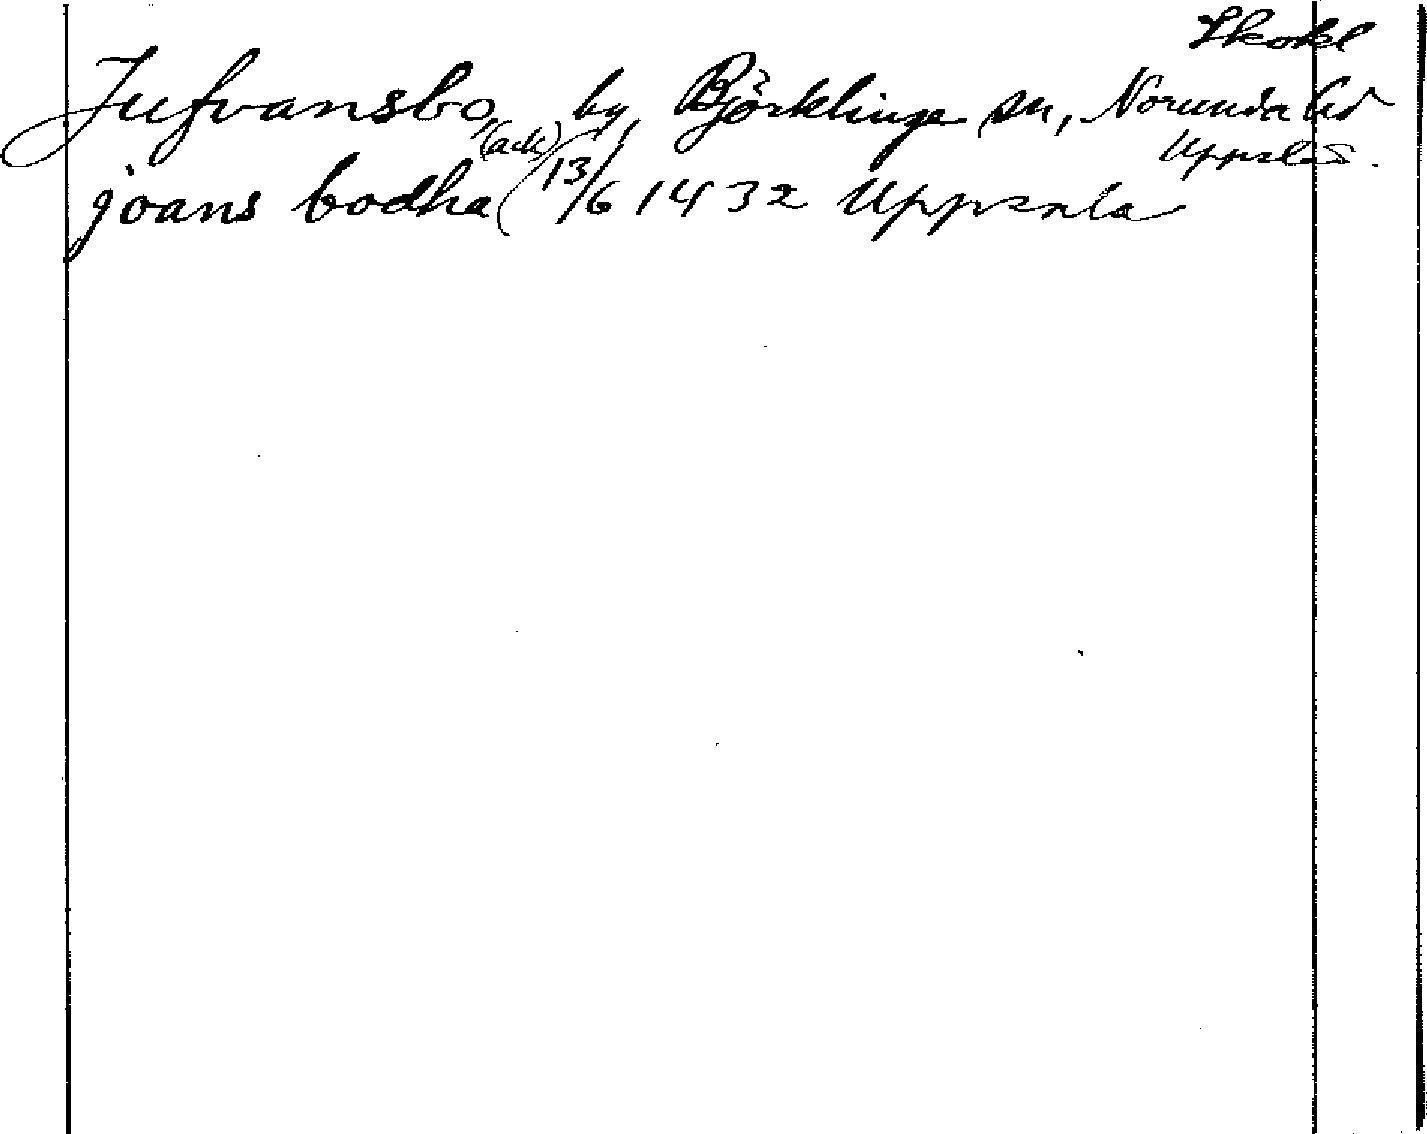 Skokl
Jufvansbo, by, Björklinge sn, Norunda hd
Uppsl.
joans bodha (ack) 13/6 1432 Uppsala